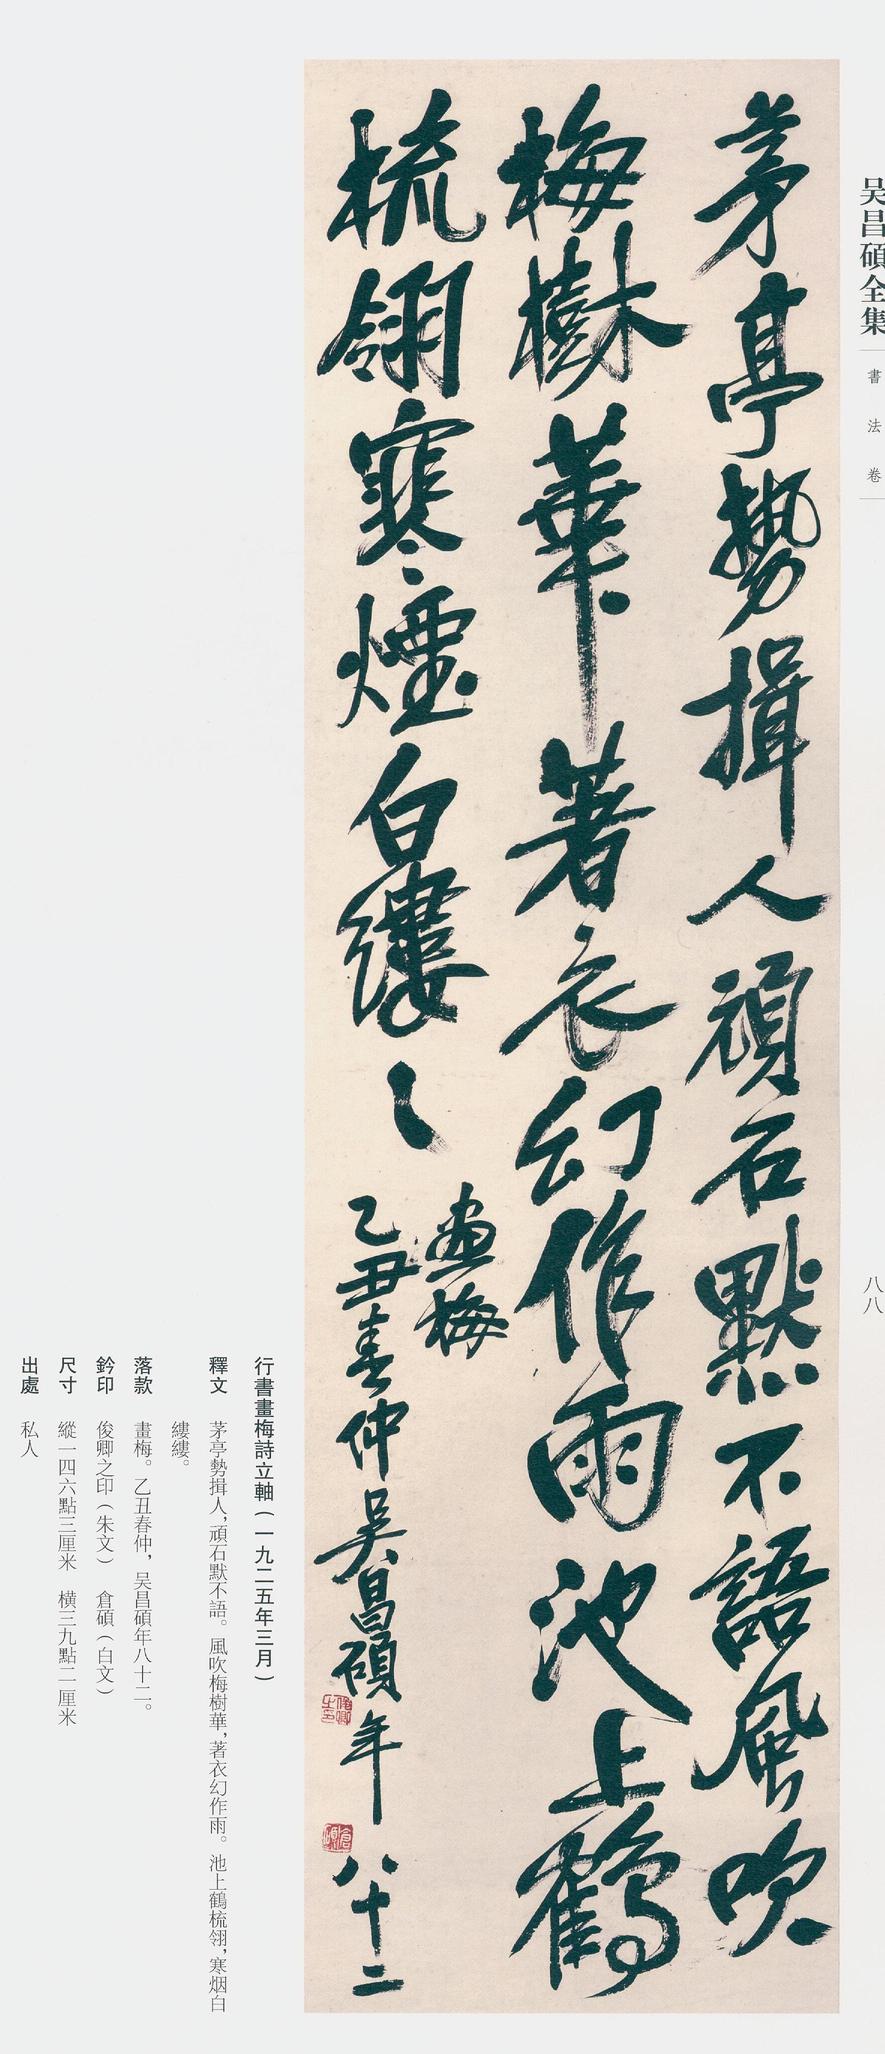 吴昌碩全集
書法卷
八八
茅亭勢揖人頑石默不語風吹
梅樹華著衣幻作雨池上鶴
梳翎寒煙白縷〻
畫梅
乙丑春仲吴昌碩年八十二
俊卿之印
倉碩
行書畫梅詩立軸（一九二五年三月）
釋文 茅亭勢揖人，頑石默不語。風吹梅樹華，著衣幻作雨。池上鶴梳翎，寒烟白
縷縷。
落款 畫梅。乙丑春仲，吴昌碩年八十二。
鈐印 俊卿之印（朱文） 倉碩（白文）
尺寸 縱一四六點三厘米 橫三九點二厘米
出處 私人